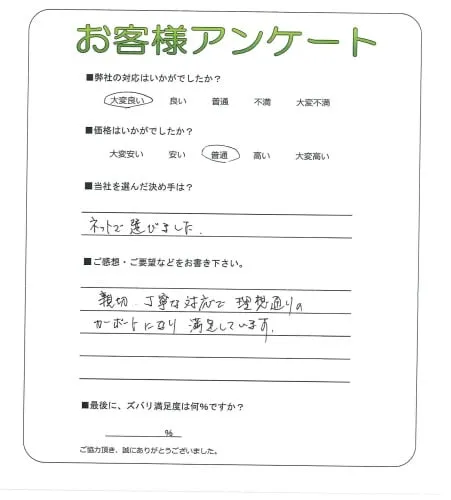 お客様アンケート
■弊社の対応はいかがでしたか？
大変良い 良い 普通 不満 大変不満
■価格はいかがでしたか？
大変安い 安い 普通 高い 大変高い
■当社を選んだ決め手は？
ネットで選びました.
■ご感想・ご要望などをお書き下さい。
親切、丁寧な対応で理想通りの
カーポートになり満足しています.
■最後に、ズバリ満足度は何%ですか？
%
ご協力頂き、誠にありがとうございました。